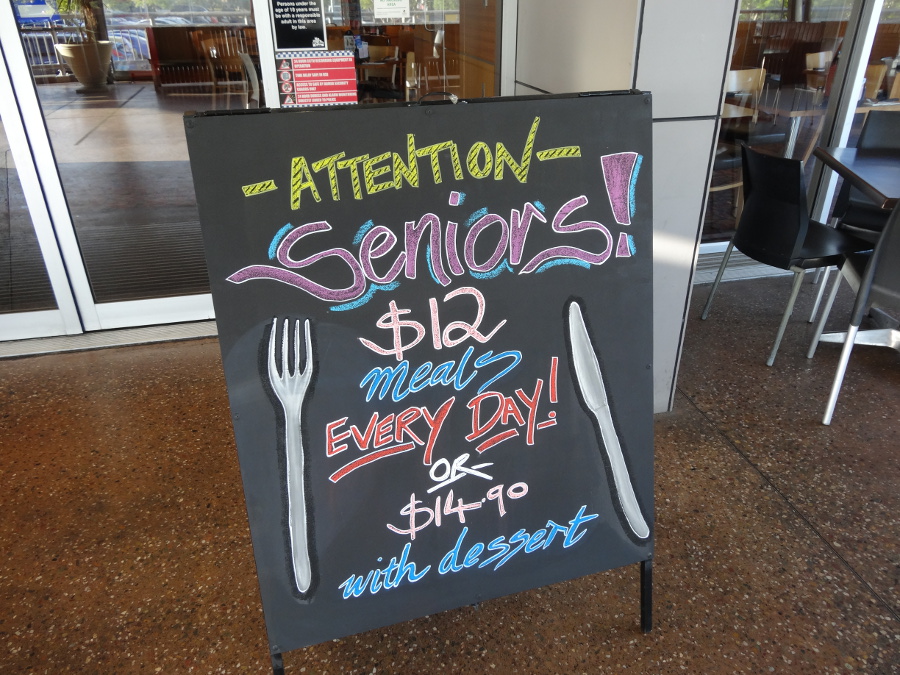 Persons under the
age of 18 years must
be with a responsible
adult in this area
by law.
- ATTENTION -
Seniors!
$12
meals
EVERY DAY!
OR
$14.90
with dessert